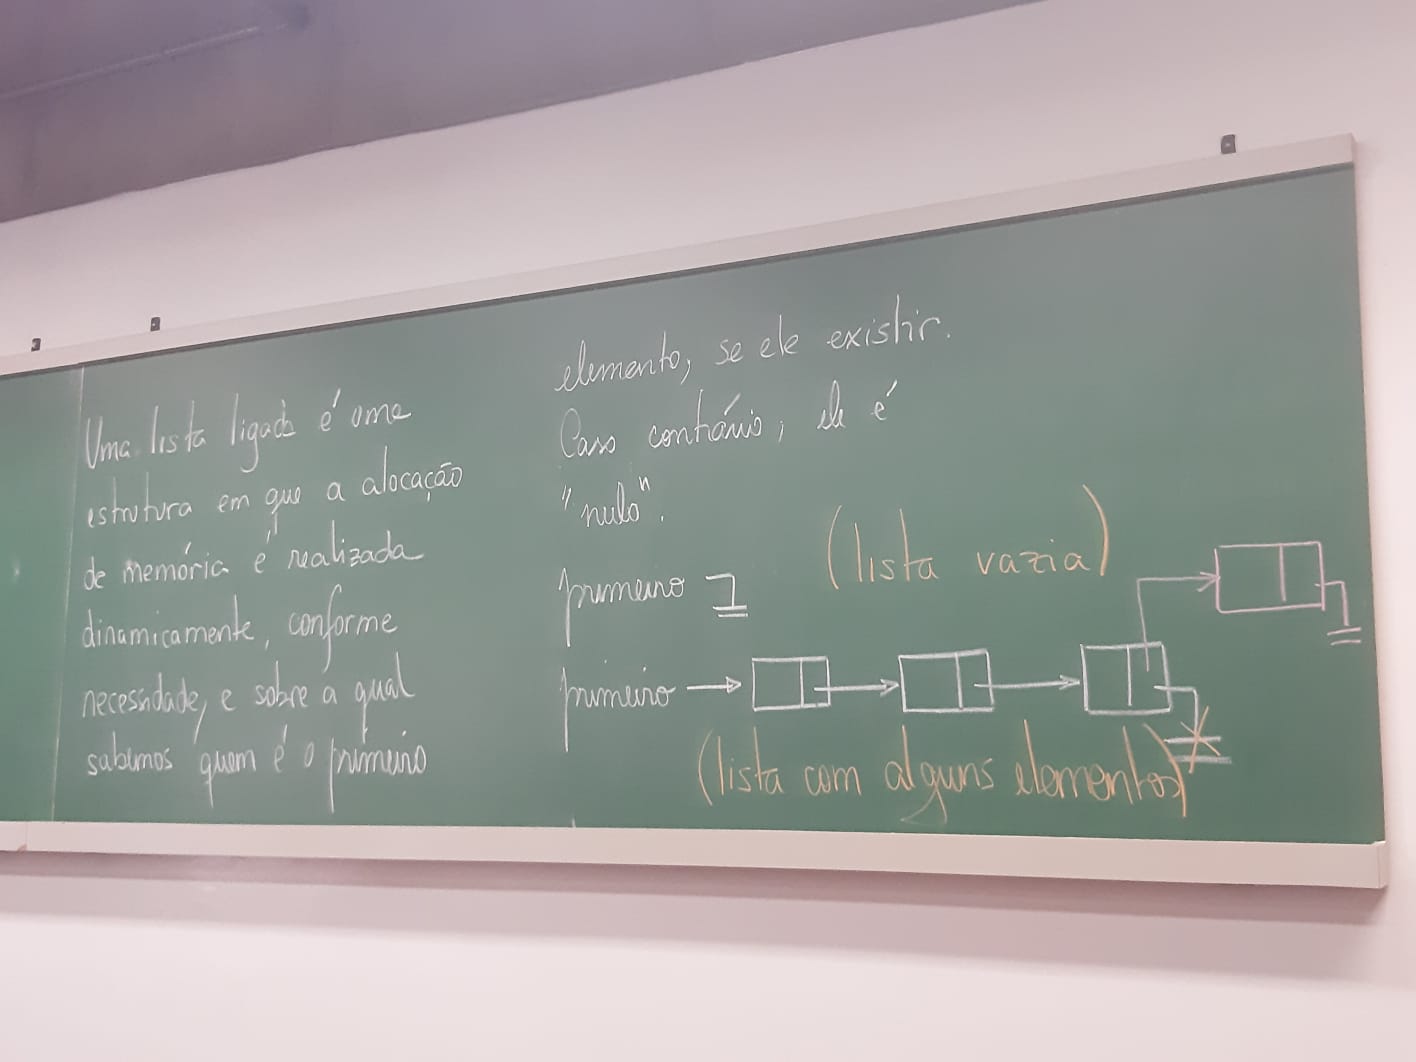 Uma lista ligada é uma
estrutura em que a alocação
de memória é realizada
dinamicamente, conforme
necessidade, e sobre a qual
sabemos quem é o primeiro
elemento, se ele existir.
Caso contrário, ele é
"nulo".
(lista vazia)
primeiro
primeiro
(lista com alguns elementos)